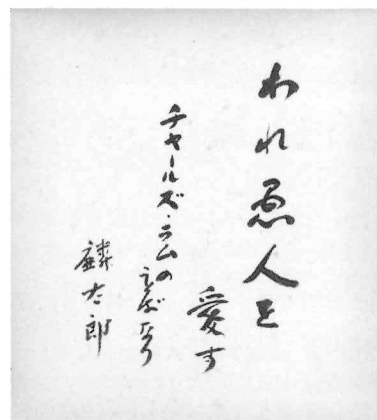 われ愚人を
愛す
チャールズ・ラムの
ことばなり
麟太郎